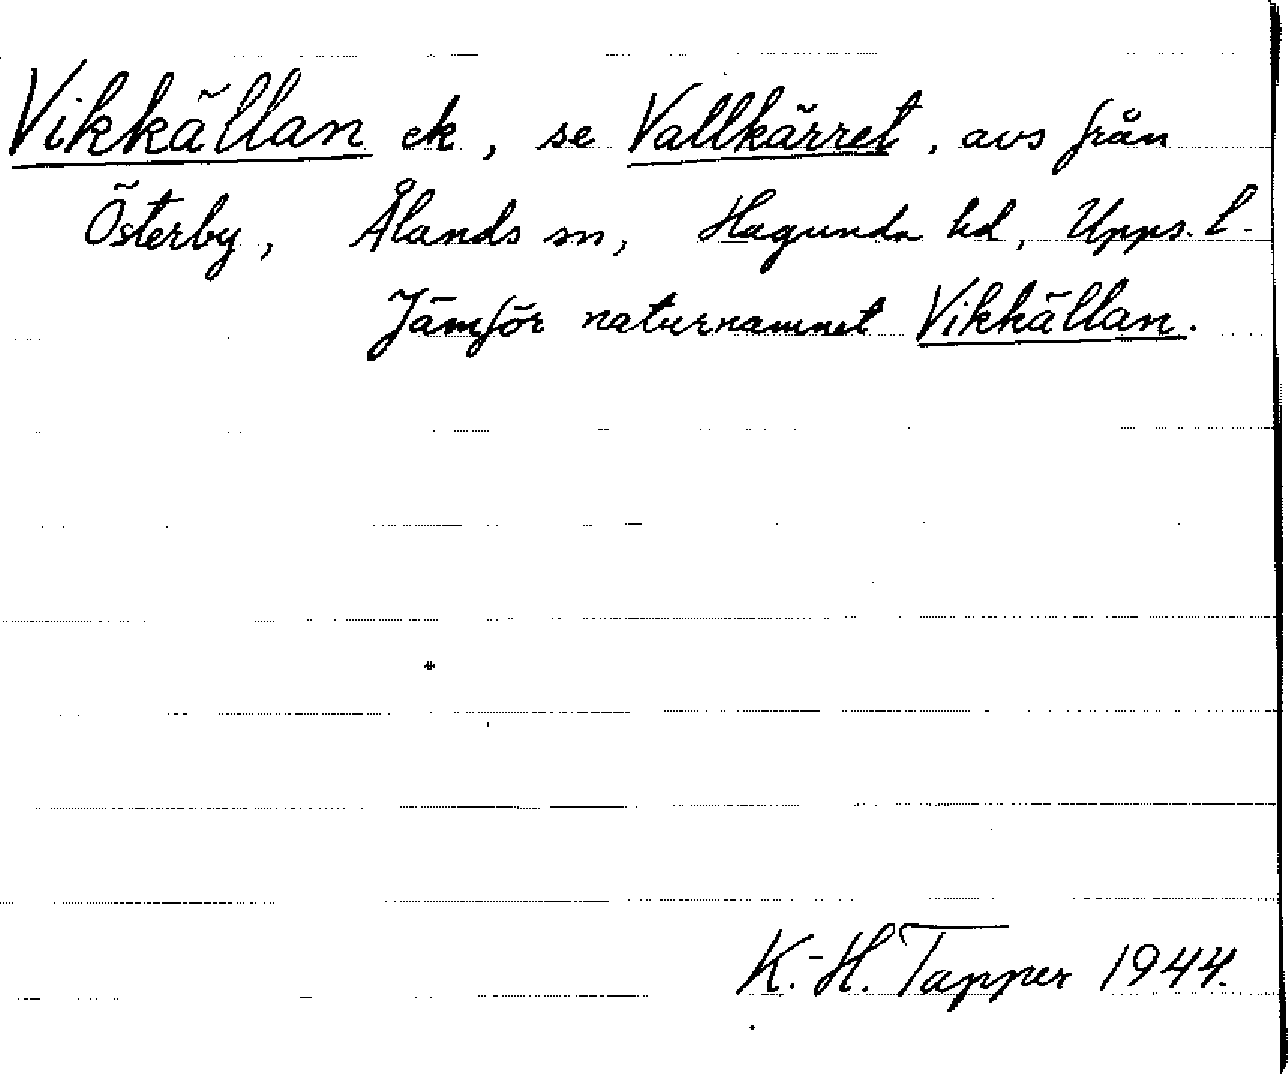 Vikkällan ek, se Vallkärret, avs från
Österby, Ålands sn, Hagunda hd, Upps. l.
Jämför naturnamnet Vikkällan.
K.-H. Tapper 1944.